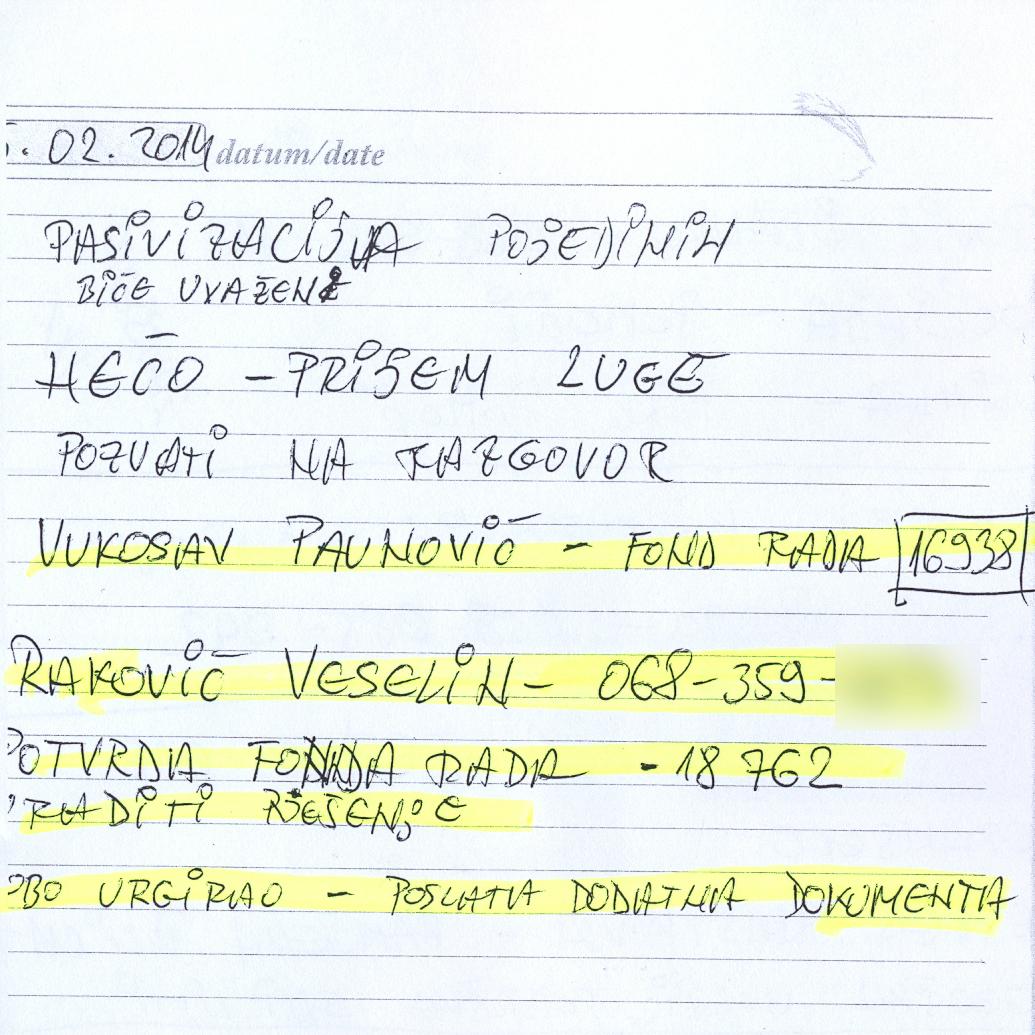 . 02. 2014 datum/date
PASIVIZACIJA POJEDINIH
BIĆE UVAŽENE
HEĆO - PRIJEM LUGE
POZVATI NA RAZGOVOR
VUKOSAV PAUNOVIĆ - FOND RADA 16938
RAKOVIĆ VESELIN - 068-359-
POTVRDA FONDA RADA - 18 762
RADITI RJEŠENJE
OBO URGIRAO - POSLATA DODATNA DOKUMENTA